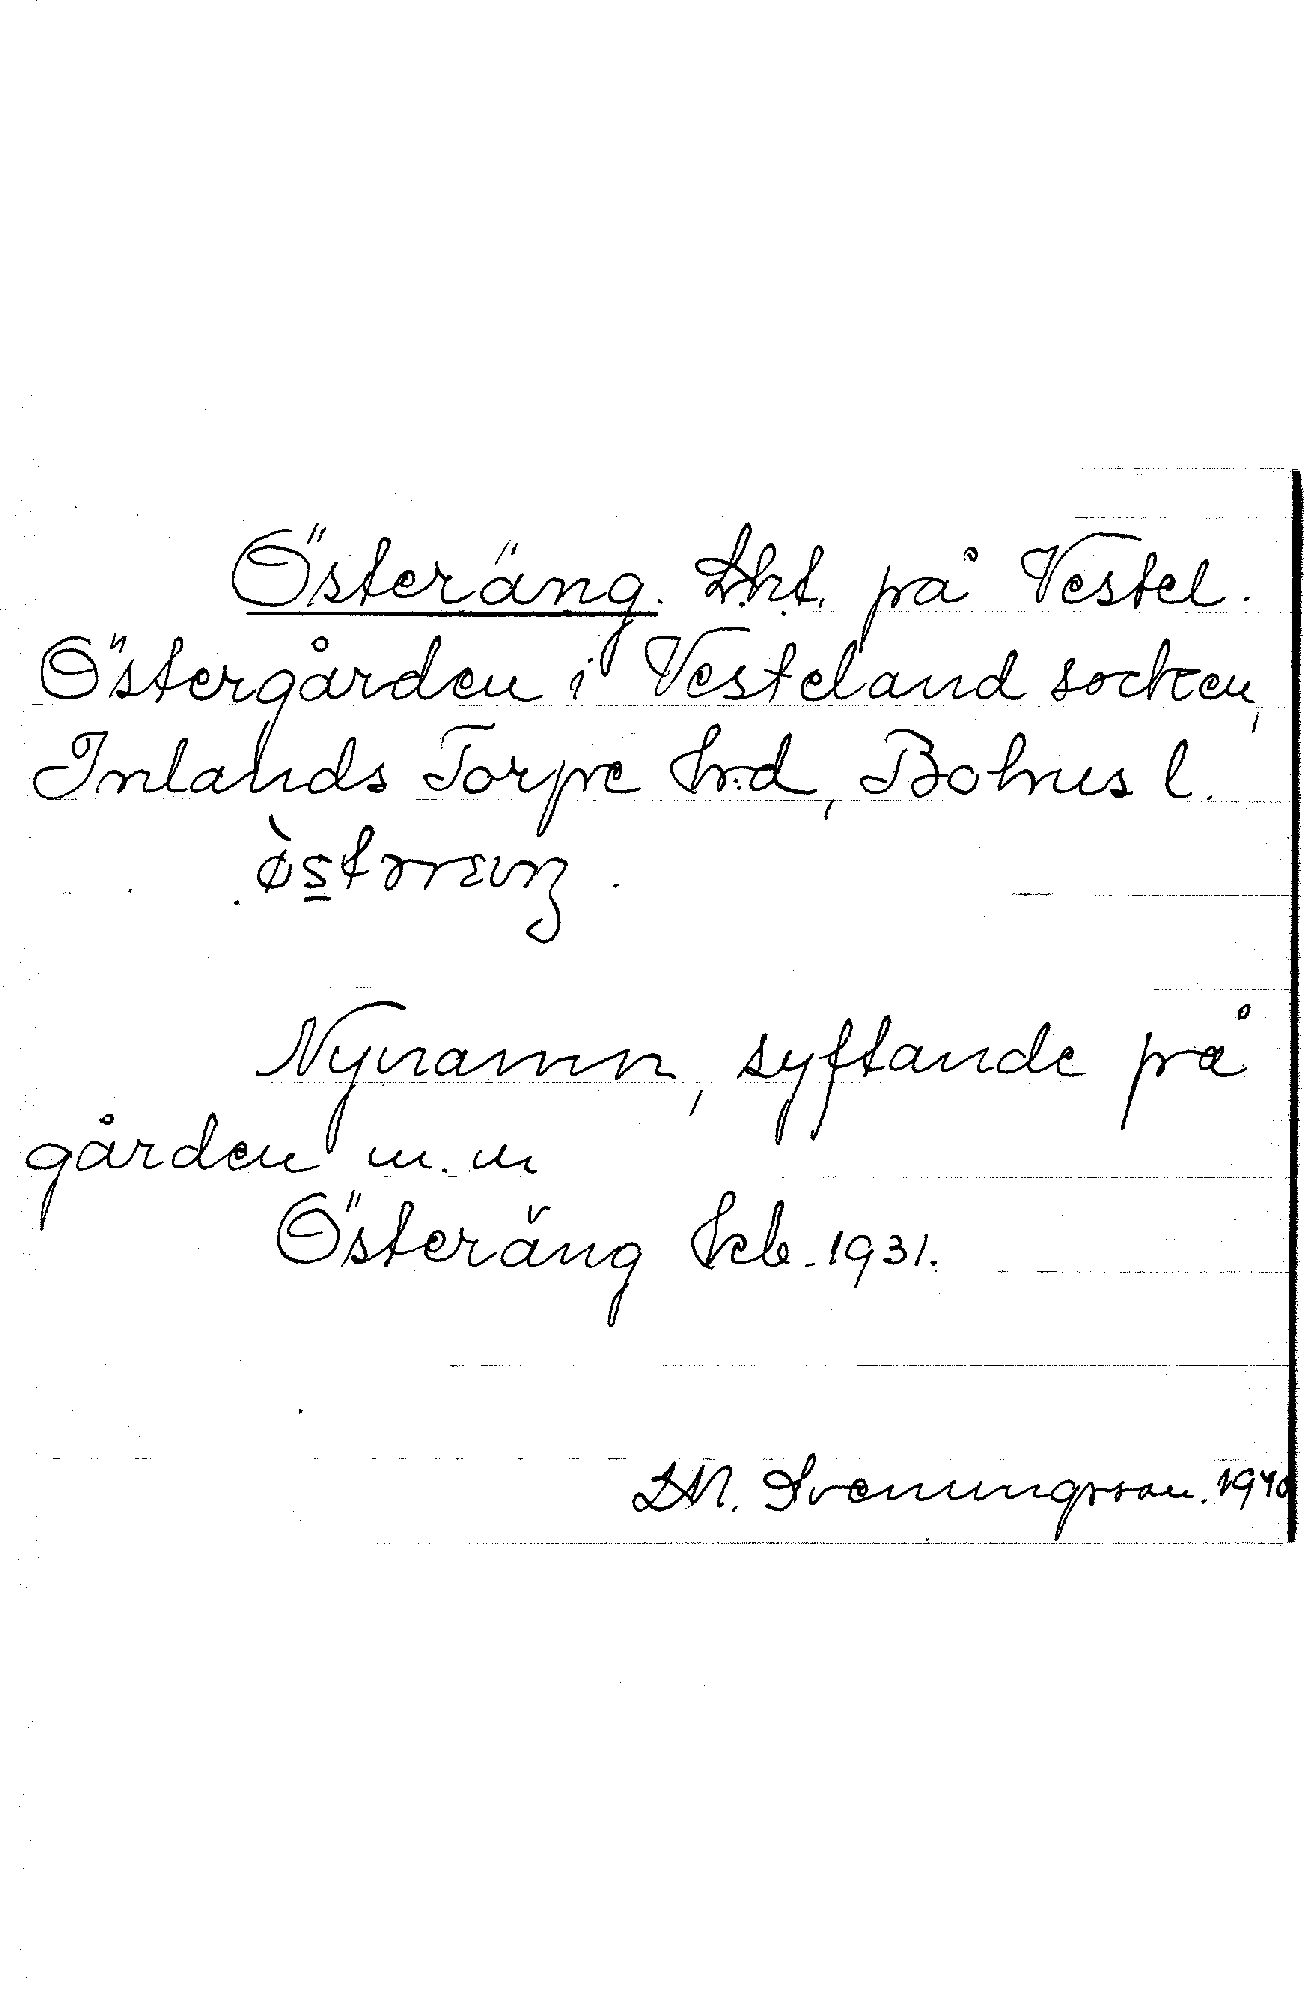 Österäng. Lht. på Vestel.
Östergården i Vesteland socken,
Inlands Torpe hrd, Bohus l.
Nynamn, syftande på
gården m. m
Österäng 1931.
D.N. Svenungsson. 1940